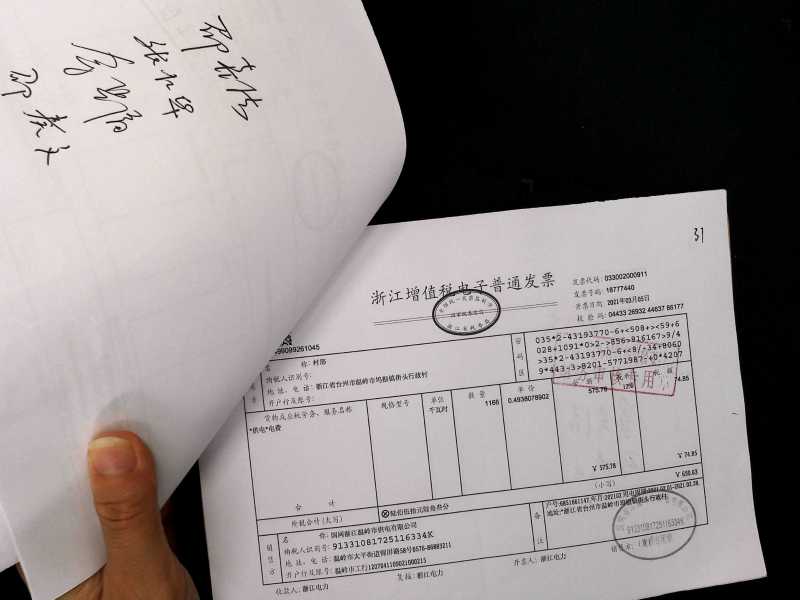 31
浙江增值税电子普通发票
发票代码: 033002000911
发票号码: 18777440
开票日期: 2021年03月05日
校 验 码: 04433 26932 44637 86177
99099261045
名 称: 村部
纳税人识别号:
地 址、电 话: 浙江省台州市温岭市坞根镇街头行政村
开户行及账号:
密码区
035*2-43193770-6+<508+><59+6
028+1091*0>2->856>916167>9/4
>35*2-43193770-6+<8/-34+8060
9*443-3>8201-5771987-+0*4207
货物或应税劳务、服务名称
规格型号
单位
数 量
单 价
税率
税 额
*供电*电费
千瓦时
1166
0.4938078902
575.78
74.85
合 计
¥ 575.78
¥ 74.85
价税合计(大写)
陆佰伍拾元陆角叁分
(小写)
¥ 650.63
销售方
名 称: 国网浙江温岭市供电有限公司
纳税人识别号: 91331081725116334K
地 址、电 话: 温岭市太平街道锦屏路58号0576-86883211
开户行及账号: 温岭市工行1207041109021000215
备注
地址:浙江省台州市温岭市坞根镇街头行政村
91331081725116334K
收款人: 浙江电力
复核: 浙江电力
开票人: 浙江电力
销售方: (章)